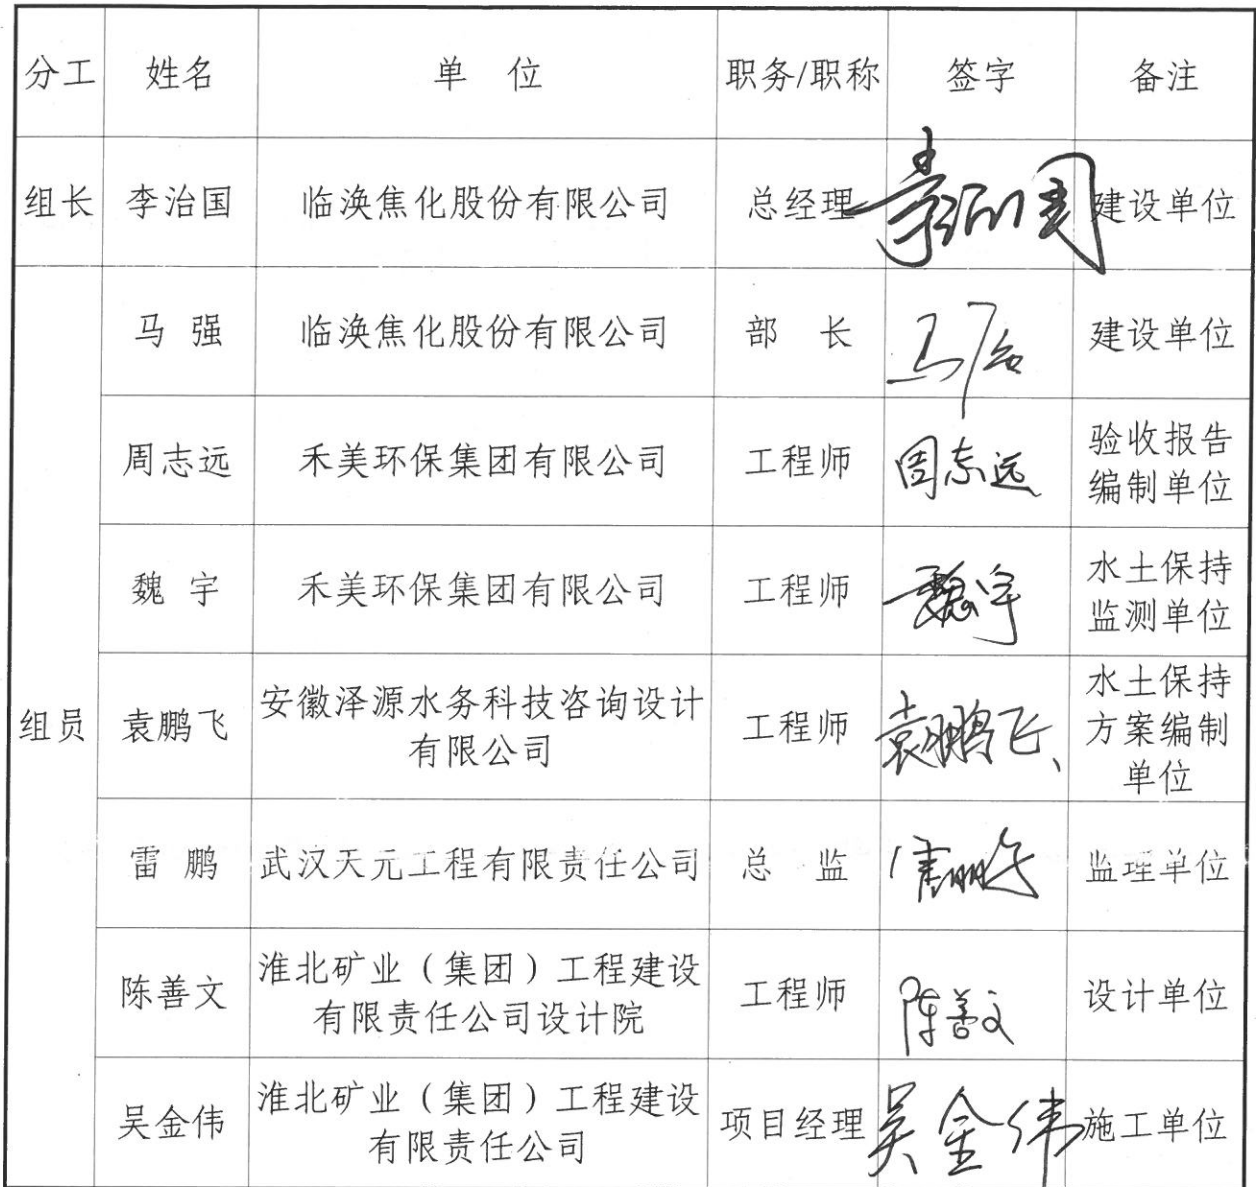 分工 姓名 单 位 职务/职称 签字 备注
组长 李治国 临涣焦化股份有限公司 总经理 李治国 建设单位
马 强 临涣焦化股份有限公司 部 长 马强 建设单位
周志远 禾美环保集团有限公司 工程师 周志远 验收报告
编制单位
魏 宇 禾美环保集团有限公司 工程师 魏宇 水土保持
监测单位
组员 袁鹏飞 安徽泽源水务科技咨询设计
有限公司 工程师 袁鹏飞 水土保持
方案编制
单位
雷 鹏 武汉天元工程有限责任公司 总 监 雷鹏 监理单位
陈善文 淮北矿业（集团）工程建设
有限责任公司设计院 工程师 陈善文 设计单位
吴金伟 淮北矿业（集团）工程建设
有限责任公司 项目经理 吴金伟 施工单位